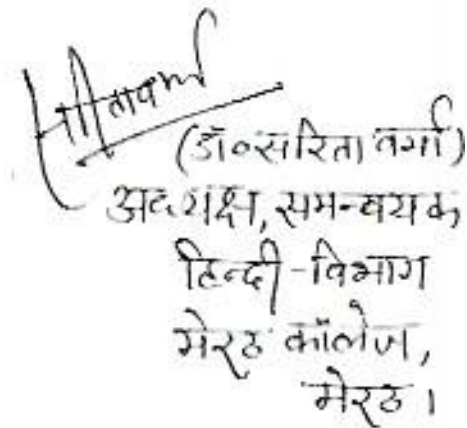 (डॉ॰सरिता वर्मा)
अध्यक्ष, समन्वयक
हिन्दी-विभाग
मेरठ कॉलेज,
मेरठ।